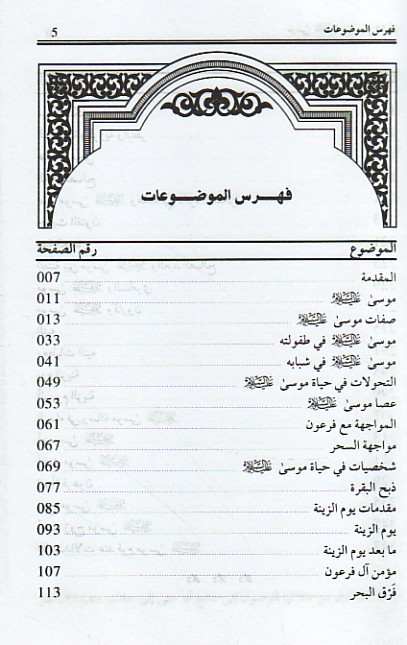 فهرس الموضوعات 5
فهرس الموضــوعات
الموضوع رقم الصفحة
المقدمة 007
موسىٰ عليه السلام 011
صفات موسىٰ عليه السلام 013
موسىٰ عليه السلام في طفولته 033
موسىٰ عليه السلام في شبابه 041
التحولات في حياة موسىٰ عليه السلام 049
عصا موسىٰ عليه السلام 053
المواجهة مع فرعون 061
مواجهة السحر 067
شخصيات في حياة موسىٰ عليه السلام 069
ذبح البقرة 077
مقدمات يوم الزينة 085
يوم الزينة 093
ما بعد يوم الزينة 103
مؤمن آل فرعون 107
فَرْق البحر 113